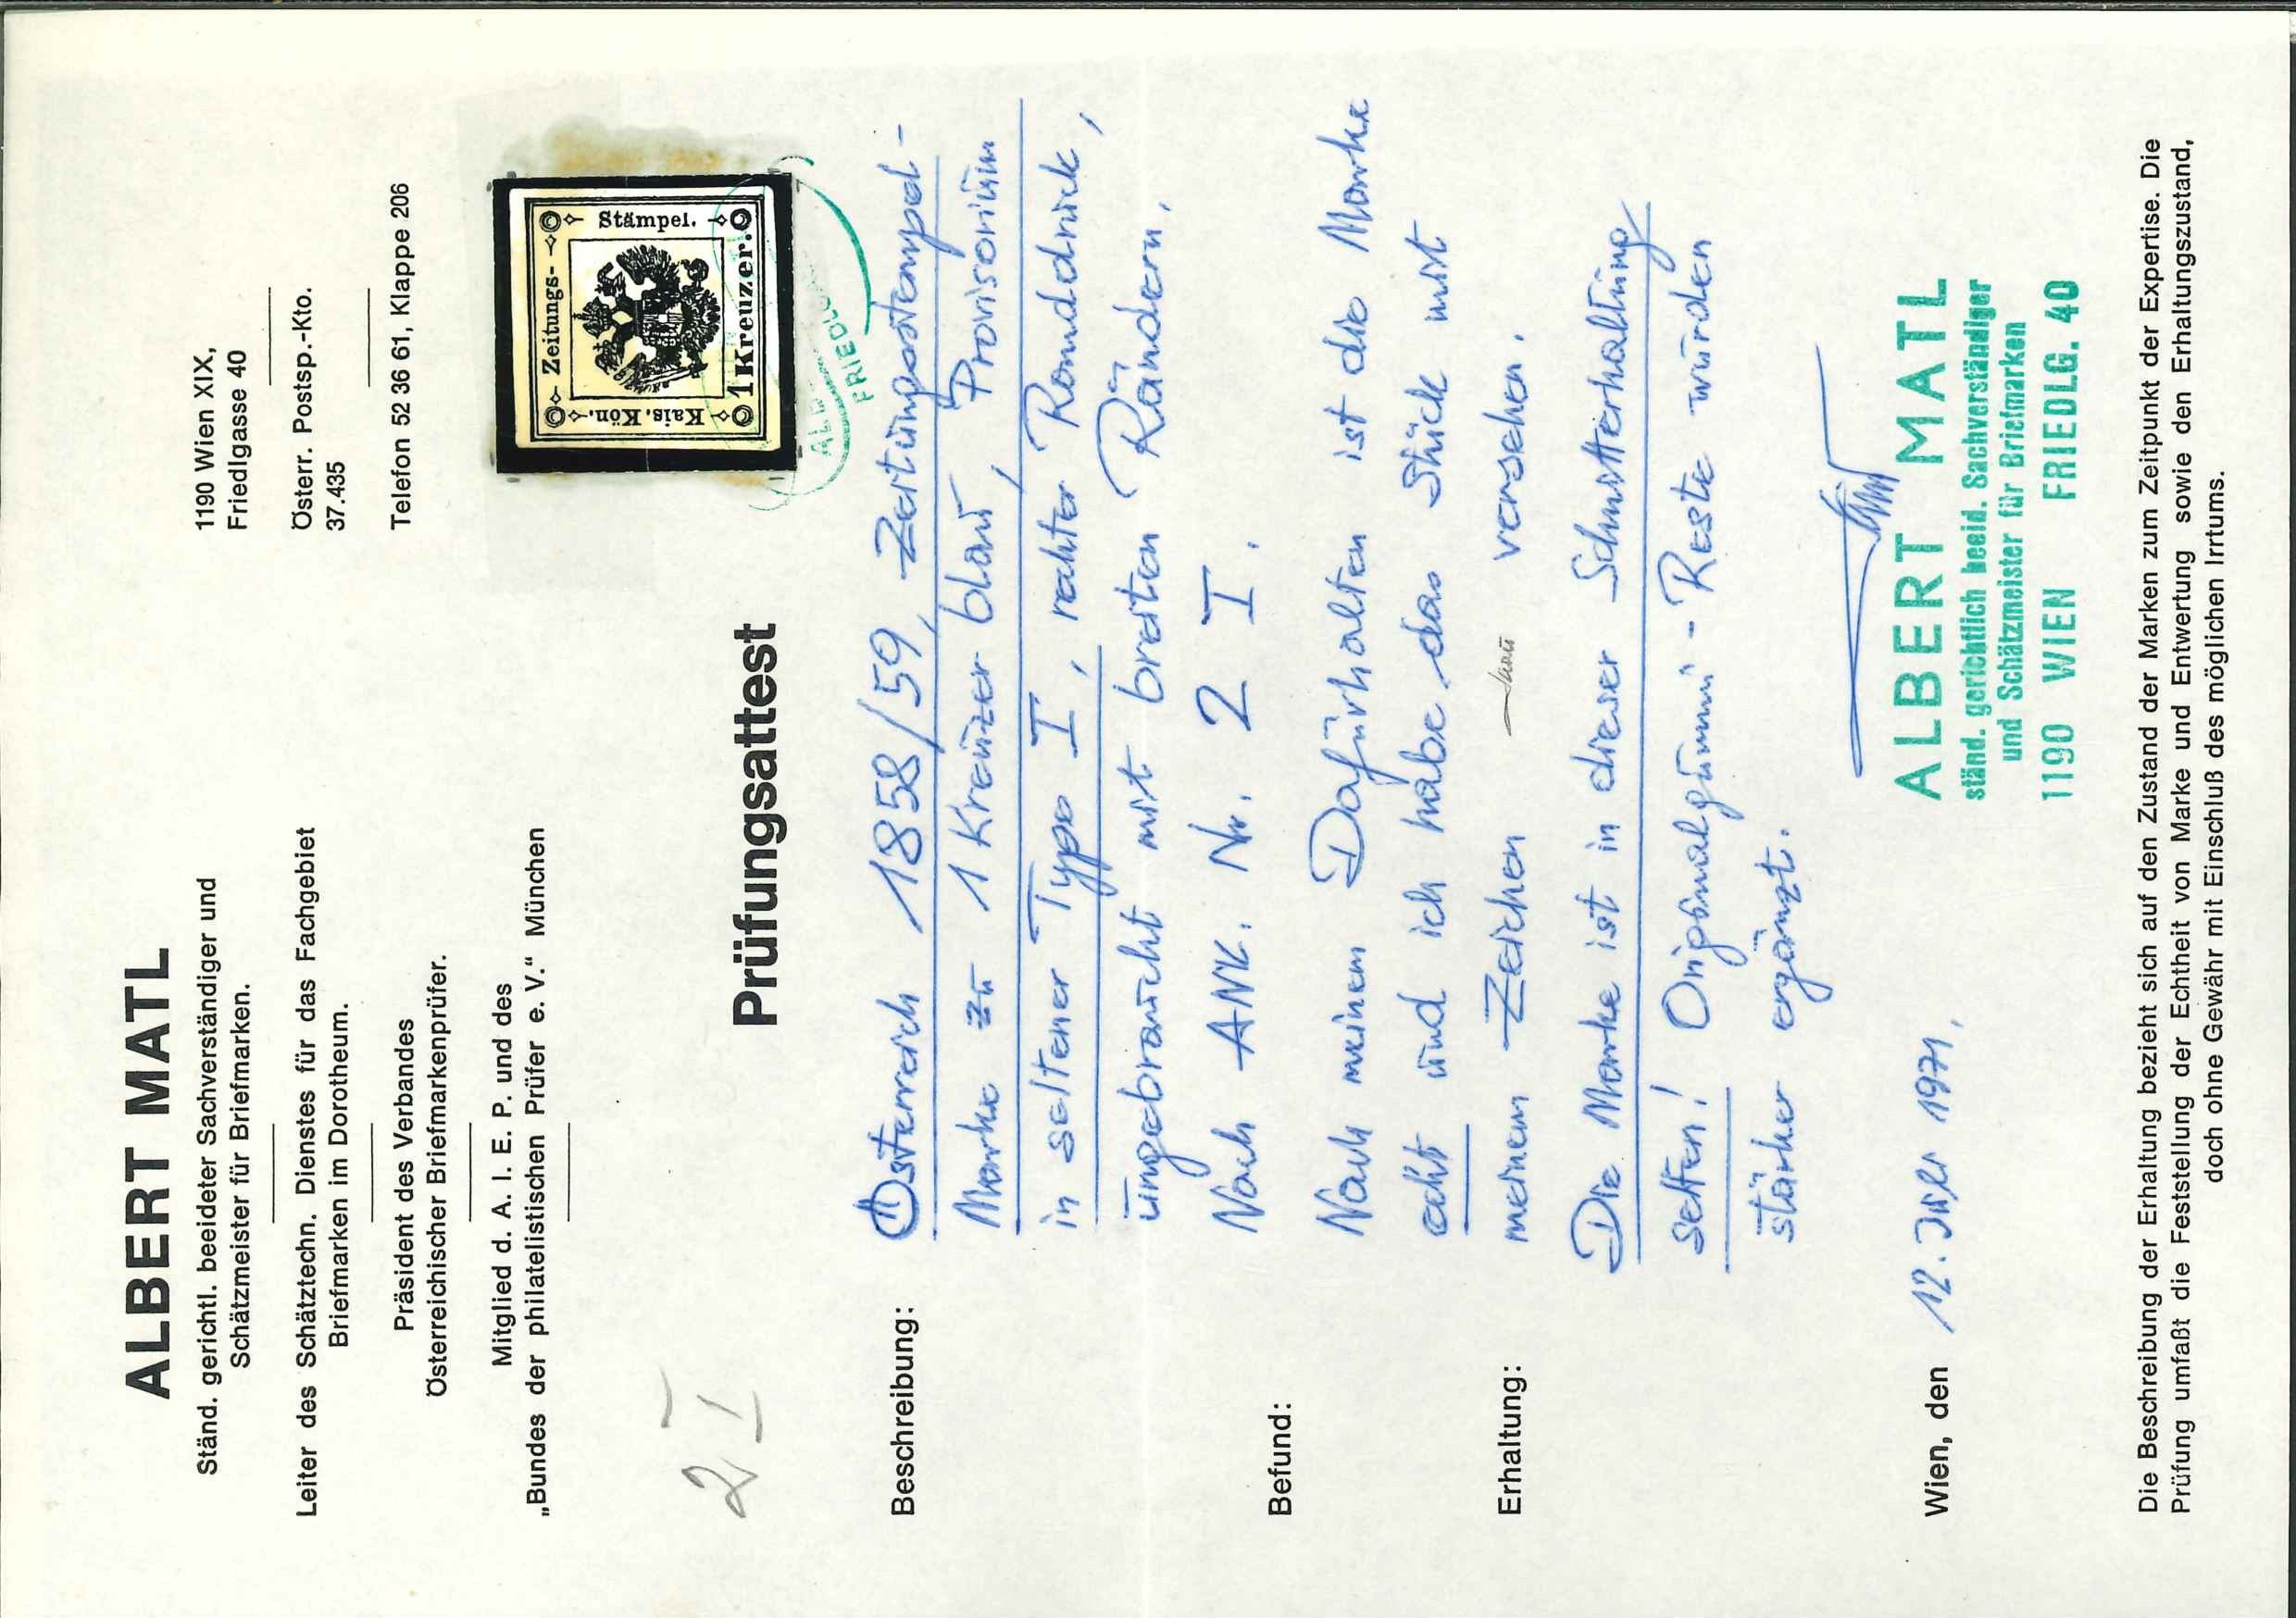 ALBERT MATL
Ständ. gerichtl. beeideter Sachverständiger und
Schätzmeister für Briefmarken.
Leiter des Schätztechn. Dienstes für das Fachgebiet
Briefmarken im Dorotheum.
Präsident des Verbandes
Österreichischer Briefmarkenprüfer.
Mitglied d. A. I. E. P. und des
„Bundes der philatelistischen Prüfer e. V.“ München
1190 Wien XIX,
Friedlgasse 40
Österr. Postsp.-Kto.
37.435
Telefon 52 36 61, Klappe 206
Kais. Kön.
Zeitungs-
Stämpel.
1 Kreuzer.
FRIEDLGA
2 I
Prüfungsattest
Beschreibung:
Österreich 1858/59, Zeitungsstempel-
Marke zu 1 Kreuzer blau, Provisorium
in seltener Type I, rechter Randdruck,
ungebraucht mit breiten Rändern,
Nach ANK. Nr. 2 I.
Befund:
Nach meinem Dafürhalten ist die Marke
echt und ich habe das Stück mit
meinem Zeichen versehen.
Erhaltung:
Die Marke ist in dieser Schnitterhaltung
selten! Originalgummi-Reste wurden
stärker ergänzt.
Wien, den 12. Juli 1971.
ALBERT MATL
ständ. gerichtlich beeid. Sachverständiger
und Schätzmeister für Briefmarken
1190 WIEN FRIEDLG. 40
Die Beschreibung der Erhaltung bezieht sich auf den Zustand der Marken zum Zeitpunkt der Expertise. Die
Prüfung umfaßt die Feststellung der Echtheit von Marke und Entwertung sowie den Erhaltungszustand,
doch ohne Gewähr mit Einschluß des möglichen Irrtums.